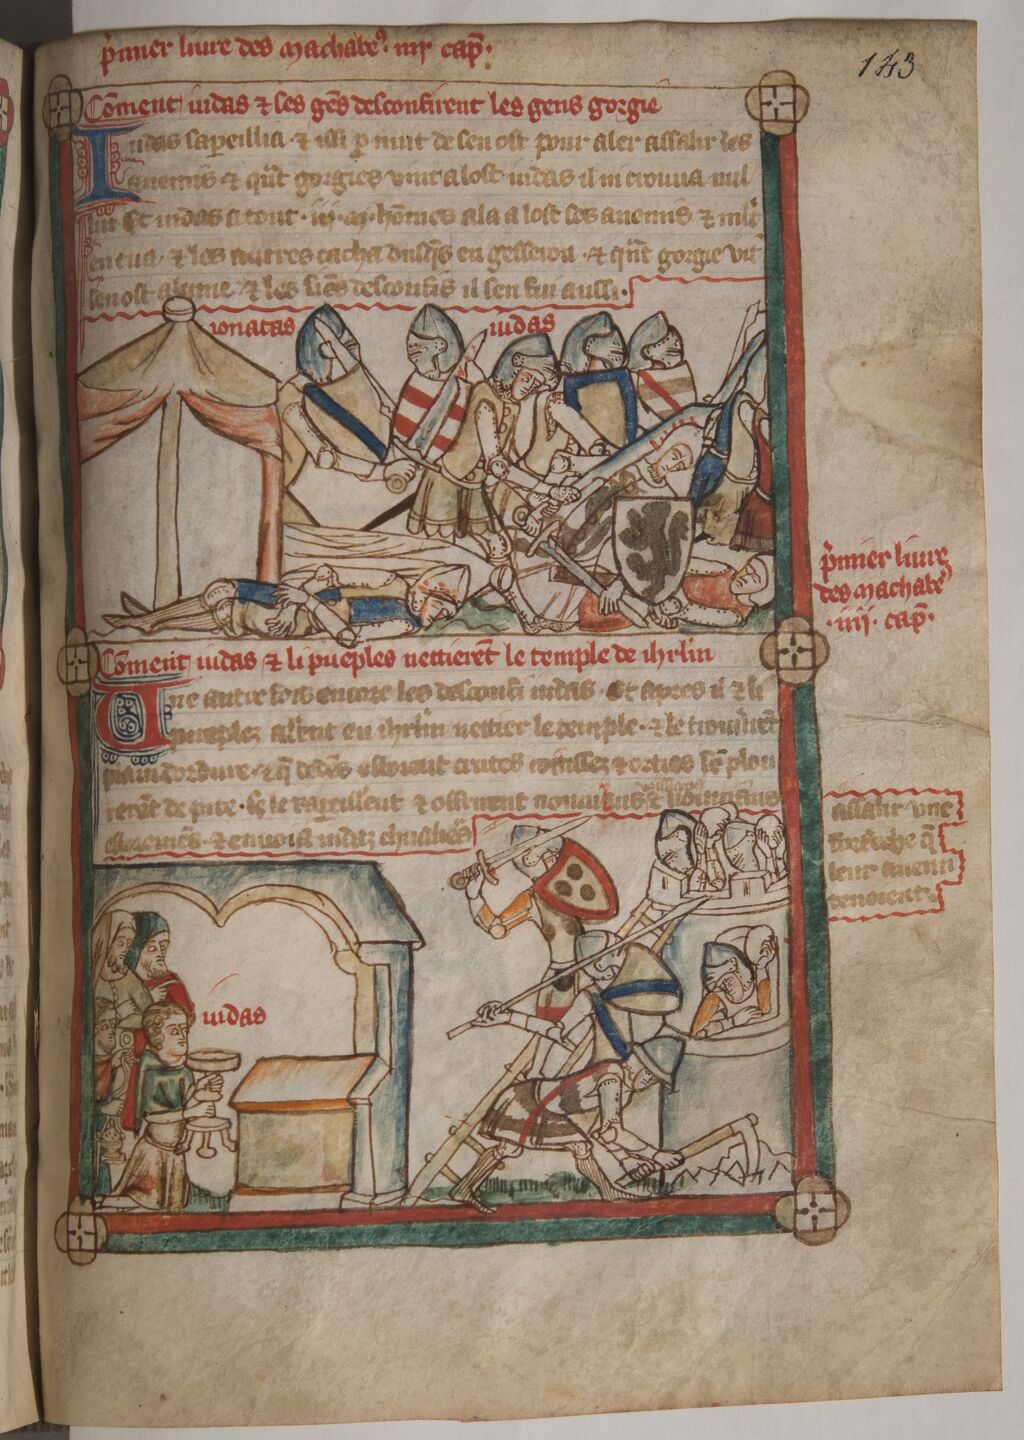 p̄mier liure des machabe⁹· iiij cap̄·
143
Cōment iudas ⁊ ses gēs desconfirent les gens gorgie
Iudas sapeillia · ⁊ issi p nuit de sen ost pour aler assalir ses
anemis ⁊ qūt gorgies vint a lost iudas il ni trouua nul
lui Et iudas a tout · iij · m · hōmes ala a lost ses anemis ⁊
en tua · ⁊ les autres cacha en gesseron · ⁊ qūt gorgie vit
sen ost alume · ⁊ les siēs desconfis il sen fui aussi ·
ionatas iudas
p̄mier liure
des machabe⁹
· iiij · cap̄ ·
Cōment iudas ⁊ li pueples nettierēt le temple de ihrlm
Une autre fois encore les desconfi iudas · Et apres il ⁊ li
pueplez alerent en ihrlm nettier le temple · ⁊ le
plain dordure · ⁊ q̄ estoient ⁊ orties sē plou
rerēt de pite · ⁊ offrirent
⁊ enuoia iudaz chualiers
assalir vne
q̄
leur anemi
tenoient ·
iudas